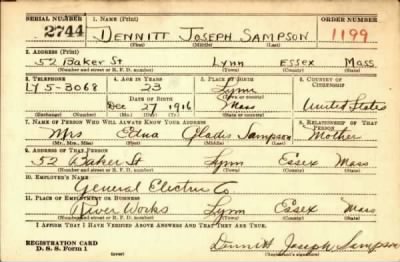 SERIAL NUMBER 1. NAME (Print) ORDER NUMBER
2744 DENNITT JOSEPH SAMPSON 1199
(First) (Middle) (Last)
2. ADDRESS (Print)
52 Baker St Lynn Essex Mass
(Number and street or R. F. D. number) (Town) (County) (State)
3. TELEPHONE 4. AGE IN YEARS 5. PLACE OF BIRTH 6. COUNTRY OF CITIZENSHIP
LY 5-3068 23 Lynn
DATE OF BIRTH (Town or county)
Dec 27 1916 Mass United States
(Exchange) (Number) (Mo.) (Day) (Yr.) (State or country)
7. NAME OF PERSON WHO WILL ALWAYS KNOW YOUR ADDRESS 8. RELATIONSHIP OF THAT PERSON
Mrs Edna Gladis Sampson Mother
(Mr., Mrs., Miss) (First) (Middle) (Last)
9. ADDRESS OF THAT PERSON
52 Baker St Lynn Essex Mass
(Number and street or R. F. D. number) (Town) (County) (State)
10. EMPLOYER'S NAME
General Electric Co
11. PLACE OF EMPLOYMENT OR BUSINESS
River Works Lynn Essex Mass
(Number and street or R. F. D. number) (Town) (County) (State)
I AFFIRM THAT I HAVE VERIFIED ABOVE ANSWERS AND THAT THEY ARE TRUE.
REGISTRATION CARD
D. S. S. Form 1 Dennitt Joseph Sampson